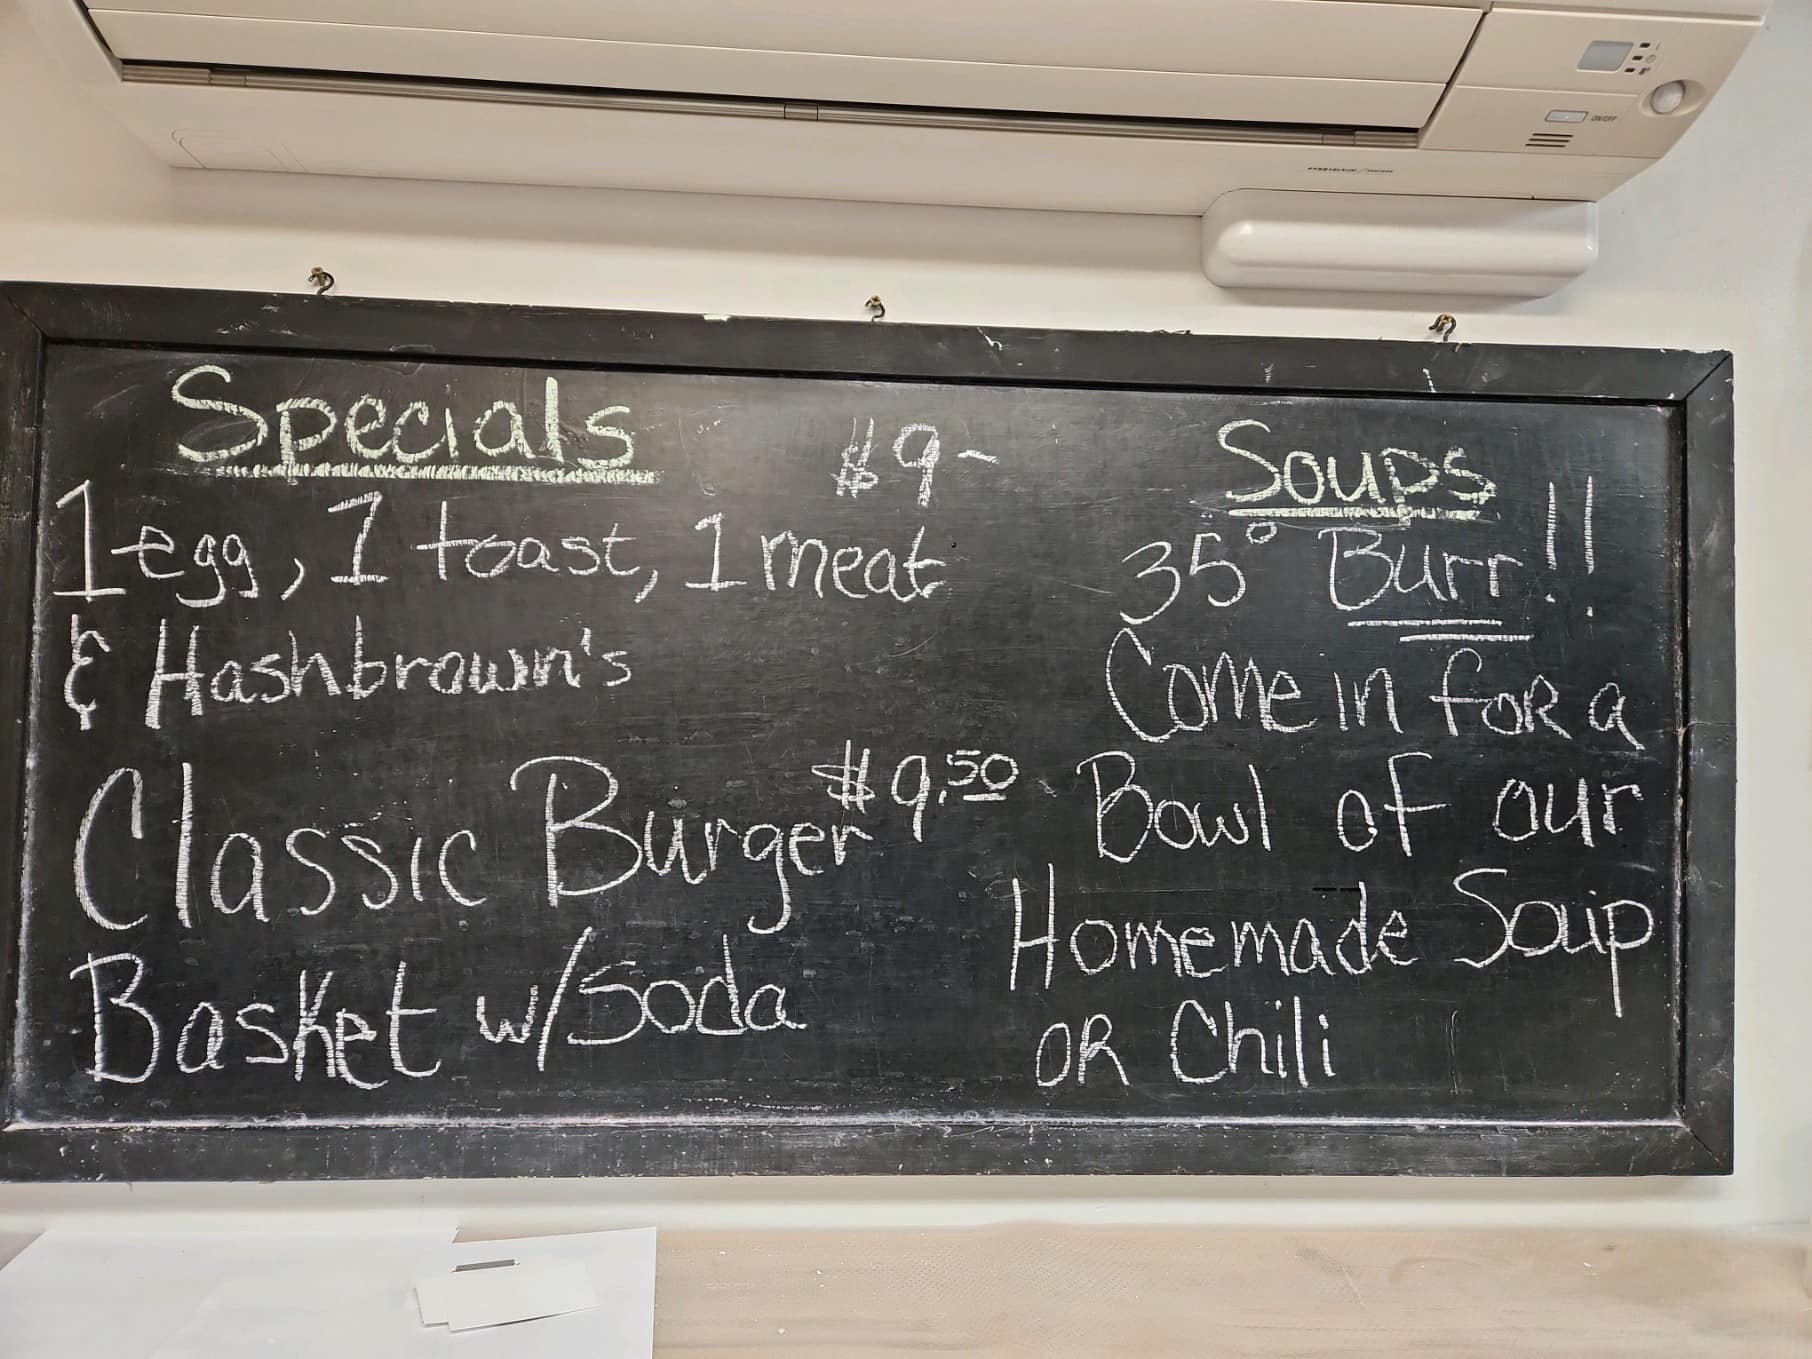 Specials
$9-
1 egg, 1 toast, 1 meat
& Hashbrown's
Classic Burger $9.50
Basket w/soda
Soups
35° Burr!!
Come in foR a
Bowl of our
Homemade Soup
OR Chili
ON/OFF